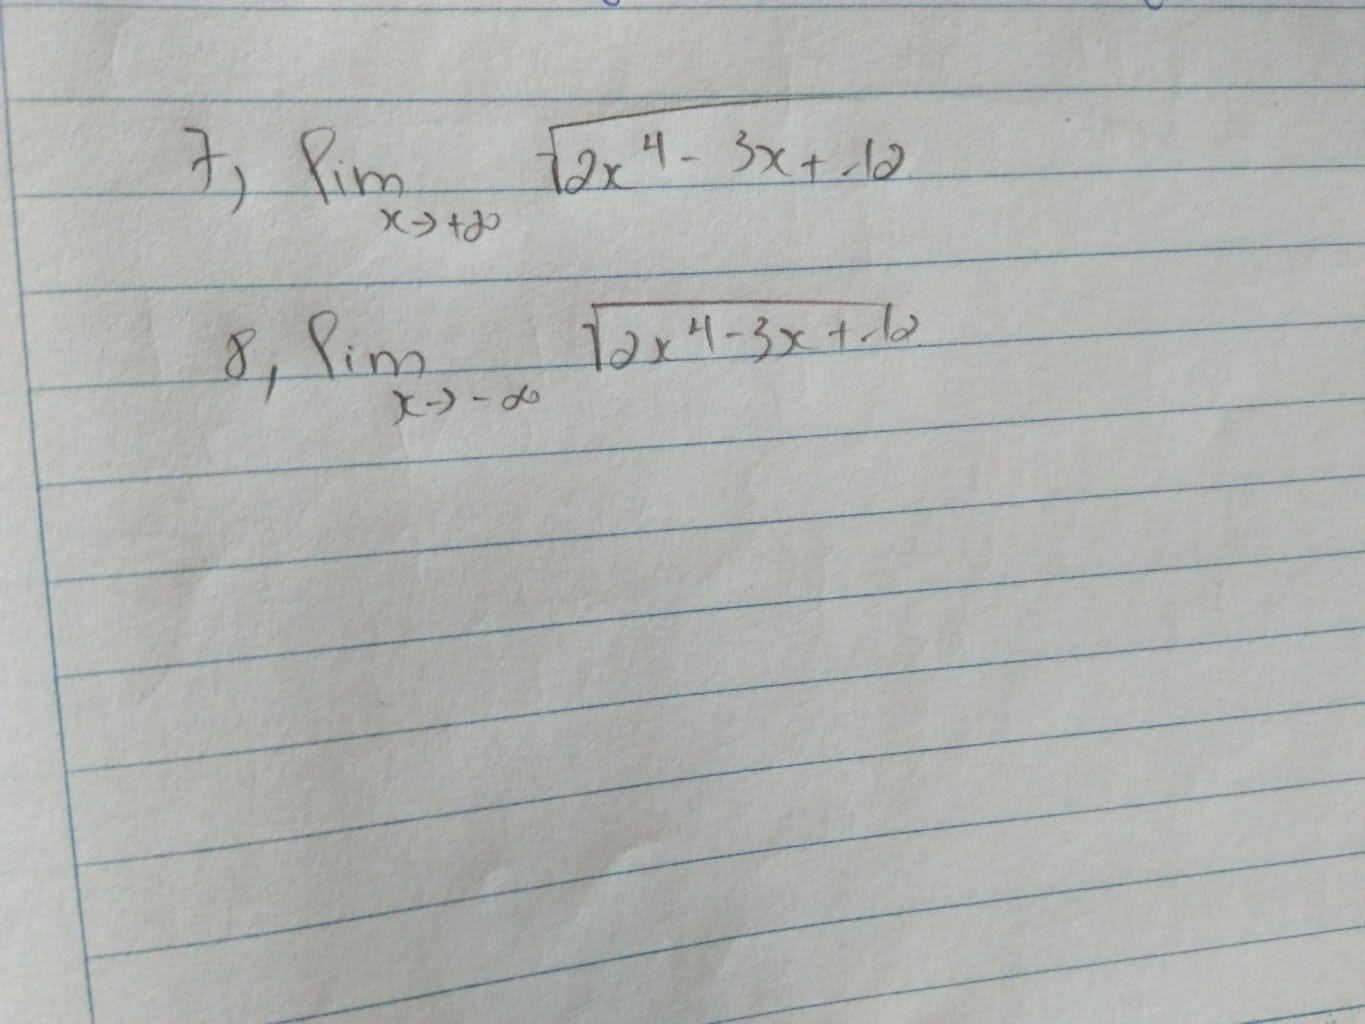 7, lim √2x⁴ - 3x + 12
x→+∞
8, lim √2x⁴ - 3x + 12
x→-∞